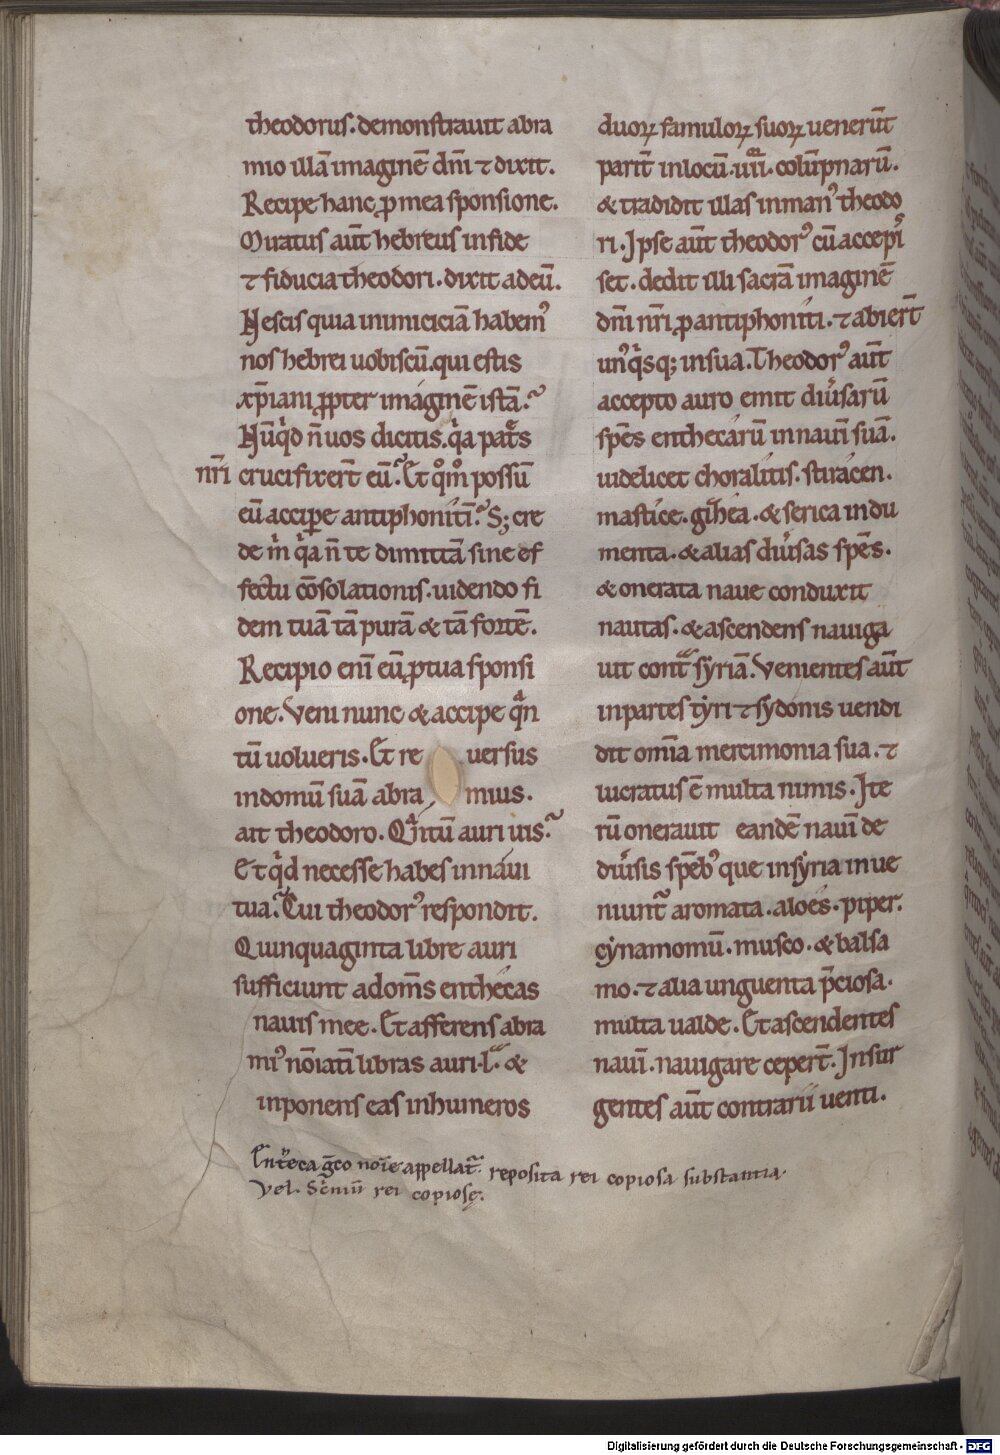 theodorus. demonstrauit abra
mio illā imaginē dn̄i ⁊ dixit.
Recipe hanc ꝓ mea sponsione.
Miratus aūt hebreus in fide
⁊ fiducia theodori. dixit ad eū.
Nescis quia inimiciciā habem᾽
nos hebrei uobiscū. qui estis
xp̄iani ꝓpter imáginē istā.
Nūqͥd n̄ uos dicitis. qͥa pat͛s
nr̄i crucifixer̄t eū. Et qͦmͦ possū
eū acciꝑe antiphonítī. S; cre
de m̍ qͥa n̄ te dimittā sine ef
fectu cōsolationis. uidendo fi
dem tuā tā purā & tā fortē.
Recipio eni͛ eū ꝓ tua sponsi
one. Veni nunc & accipe qͣn
tū uolueris. Et re uersus
in domū suā abra mius.
ait theodoro. Qͣntū auri uis.
Et qͥd necesse habes in náui
tua. Cui theodor᾽ respondit.
Quinquaginta libre auri
sufficiunt ad om̄s enthécas
nauis mee. Et afferens abra
mi᾽ nōiatī libras auri .l. &
inponens eas in humeros
duoꝝ famuloꝝ suoꝝ uenerūt
parit͛ in locū .iiii. colūpnarū.
& tradidit illas in man᾽ theodo
ri. Ipse aūt theodor᾽ cū accepi͛
set. dedit illi sacrā imaginē
dn̄i nr̄i ꝓ antiphoníti. ⁊ abier̄t
un᾽qͥsq; in sua. Theodor᾽ aūt
accepto auro emit diu͛sarū
spēs enthecárū in nauī suā.
uidelicet choralítis. stirácen.
mastíce. git͛hea. & serica indu
menta. & alias diu͛sas spēs.
& onerata naue conduxit
nautas. & ascendens nauiga
uit contͣ sẏriā. Venientes aūt
in partes tẏri ⁊ sẏdonis uendi
dit omīa mercimonia sua. ⁊
lucratus ē multa nimis. Ite
rū onerauit eandē nauī de
diu͛sis spēb᾽ que in sẏria inue
niunt͛ aromata. aloés. piper.
cẏnamomū. musco. & balsa
mo. ⁊ alia unguenta p̄ciosa.
multa ualde. Et ascendentes
nauī. nauigare ceper̄t. Insur
gentes aūt contrarii uenti.
Ent͛eca g̅co noīe appellat͛. reposita rei copiosa substantia.
Vel. Sc͛iniū rei copiosę.
Digitalisierung gefördert durch die Deutsche Forschungsgemeinschaft - DFG